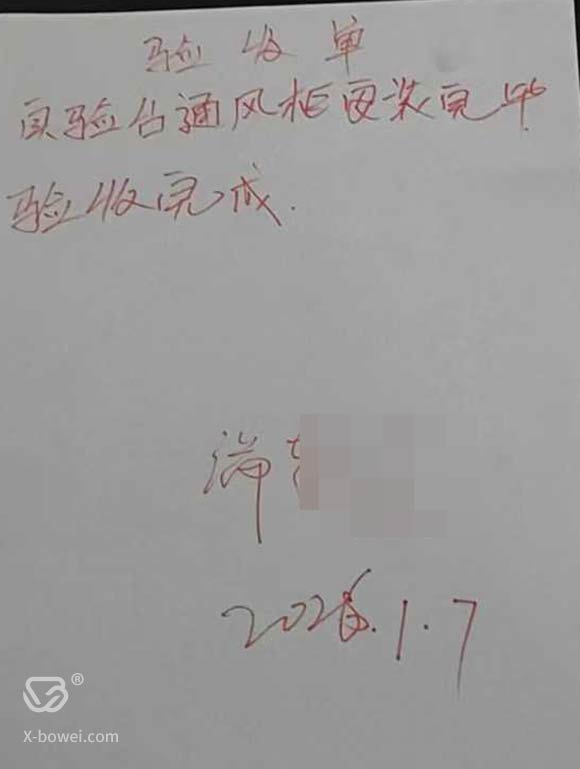 验收单
实验台通风柜安装完毕
验收完成.
2026.1.7
®
X-bowei.com